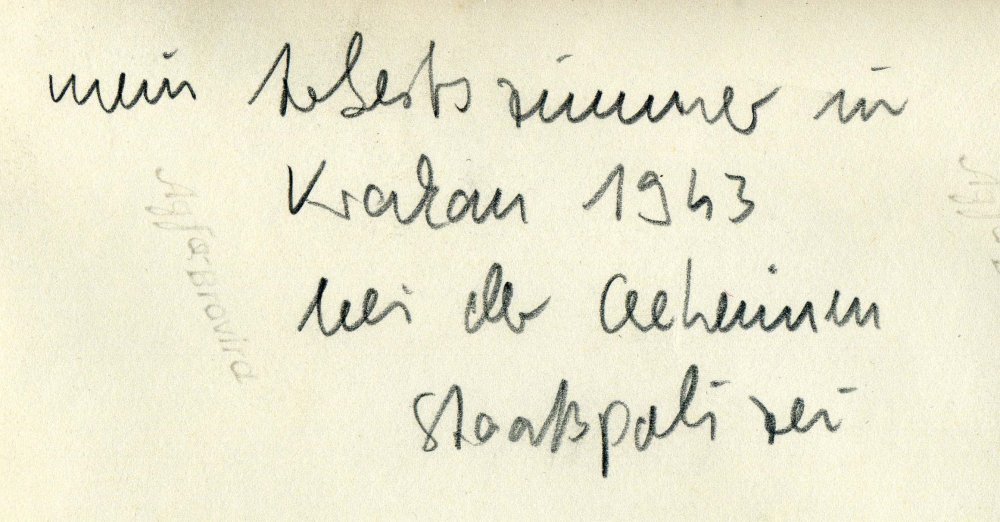 mein Arbeitszimmer in
Krakau 1943
bei der Geheimen
Staatspolizei
Agfa-Brovira
Agf